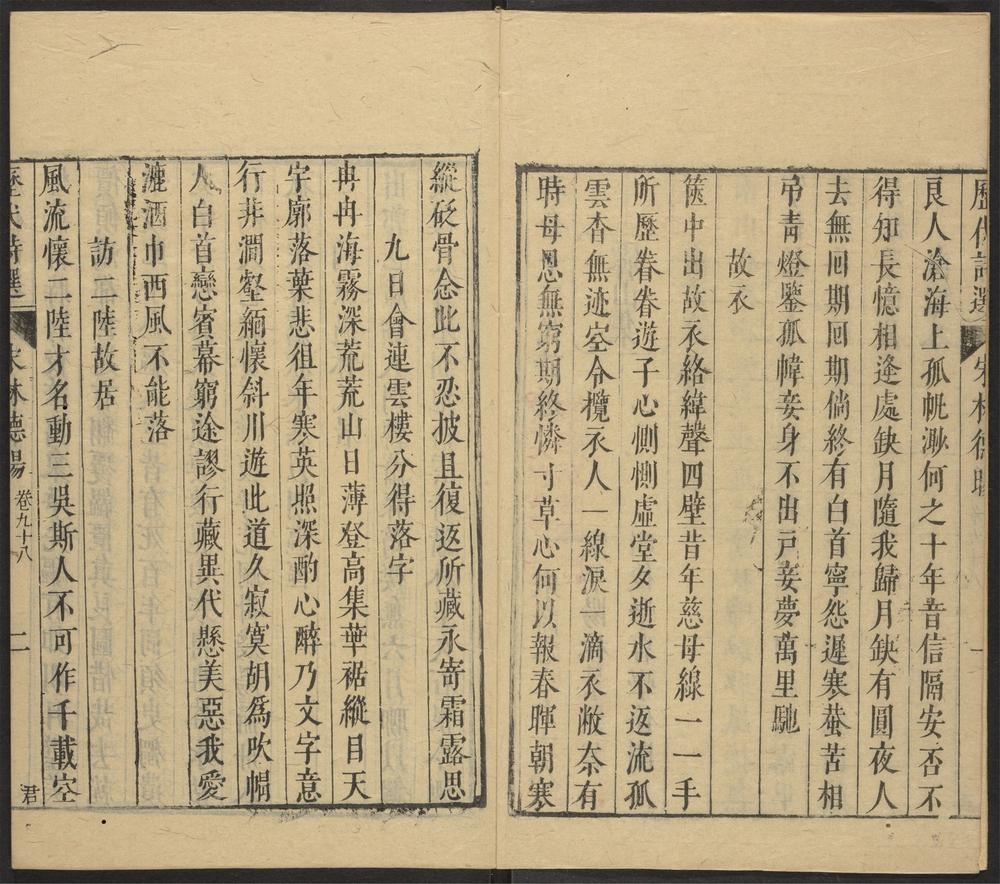 歷代詩選 宋林德暘
良人滄海上孤帆渺何之十年音信隔安否不
得知長憶相逢處缺月隨我歸月缺有圓夜人
去無回期回期倘終有白首寧怨遲寒蛩苦相
弔青燈鑒孤幃妾身不出戸妾夢萬里馳
故衣
篋中出故衣絡緯聲四壁昔年慈母線一一手
所歷眷眷遊子心惻惻虛堂夕逝水不返流孤
雲杳無迹空令攬衣人一線淚一滴衣敝柰有
時母恩無窮期終憐寸草心何以報春暉朝寒
縱砭骨念此不忍披且復返所藏永寄霜露思
九日會連雲樓分得落字
冉冉海霧深荒荒山日薄登高集華裾縱目天
宇廓落葉悲徂年寒英照深酌心醉乃文字意
行非澗壑緬懷斜川遊此道久寂寞胡爲吹帽
人白首戀賓幕窮途謬行藏異代懸美惡我愛
漉酒巾西風不能落
訪二陸故居
風流懷二陸才名動三吳斯人不可作千載空
歷代詩選 宋林德暘 卷九十八 二 君